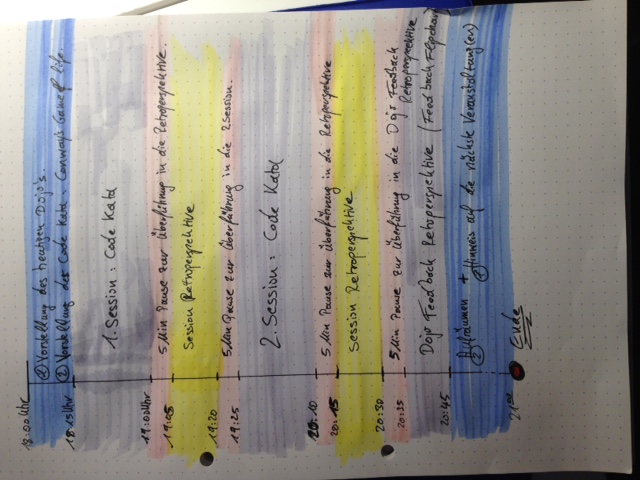 18:00 Uhr
① Vorstellung des heutigen Dojo's.
② Vorstellung des Code Kata - Conway's Game of life.
18:15 Uhr
1. Session : Code Kata
19:00 Uhr
5 Min Pause zur Überführung in die Retroperspektive.
19:05
Session Retroperspektive
19:20
5 Min Pause zur Überführung in die 2 Session.
19:25
2. Session : Code Kata
20:10
5 Min Pause zur Überführung in die Retroperspektive
20:15
Session Retroperspektive
20:30
5 Min Pause zur Überführung in die Dojo Feedback
Retroperspektive
20:35
Dojo Feedback Retroperspektive (Feedback Flipchart)
20:45
② Aufräumen + ① Hinweis auf die nächste Veranstaltung(en)
21:00
Ende